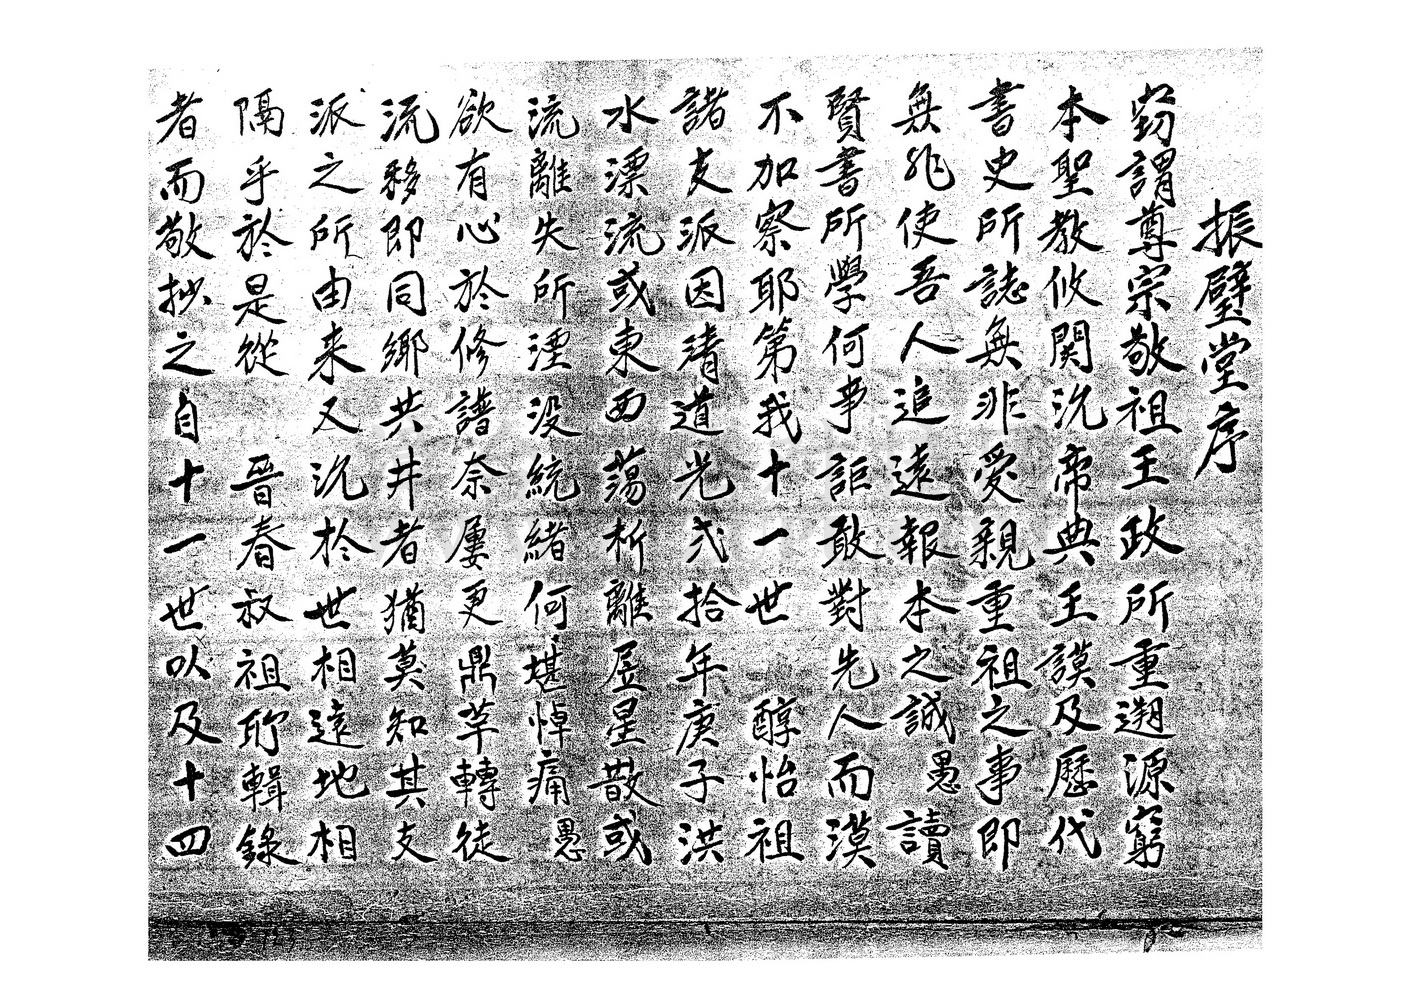 振璧堂序
窃謂尊宗敬祖王政所重遡源窮
本聖教攸関况帝典王謨及歷代
書史所誌無非愛親重祖之事即
無非使吾人追遠報本之誠愚讀
賢書所學何事詎敢對先人而漠
不加察耶第我十一世醇怡祖
諸支派因清道光弍拾年庚子洪
水漂流或東西蕩析離居星散或
流離失所湮没統緒何堪悼痛愚
欲有心於修譜奈屢更鼎革轉徒
流移即同鄉共井者猶莫知其支
派之所由来又况於世相遠地相
隔乎於是從晉春叔祖所輯錄
者而敬抄之自十一世以及十四